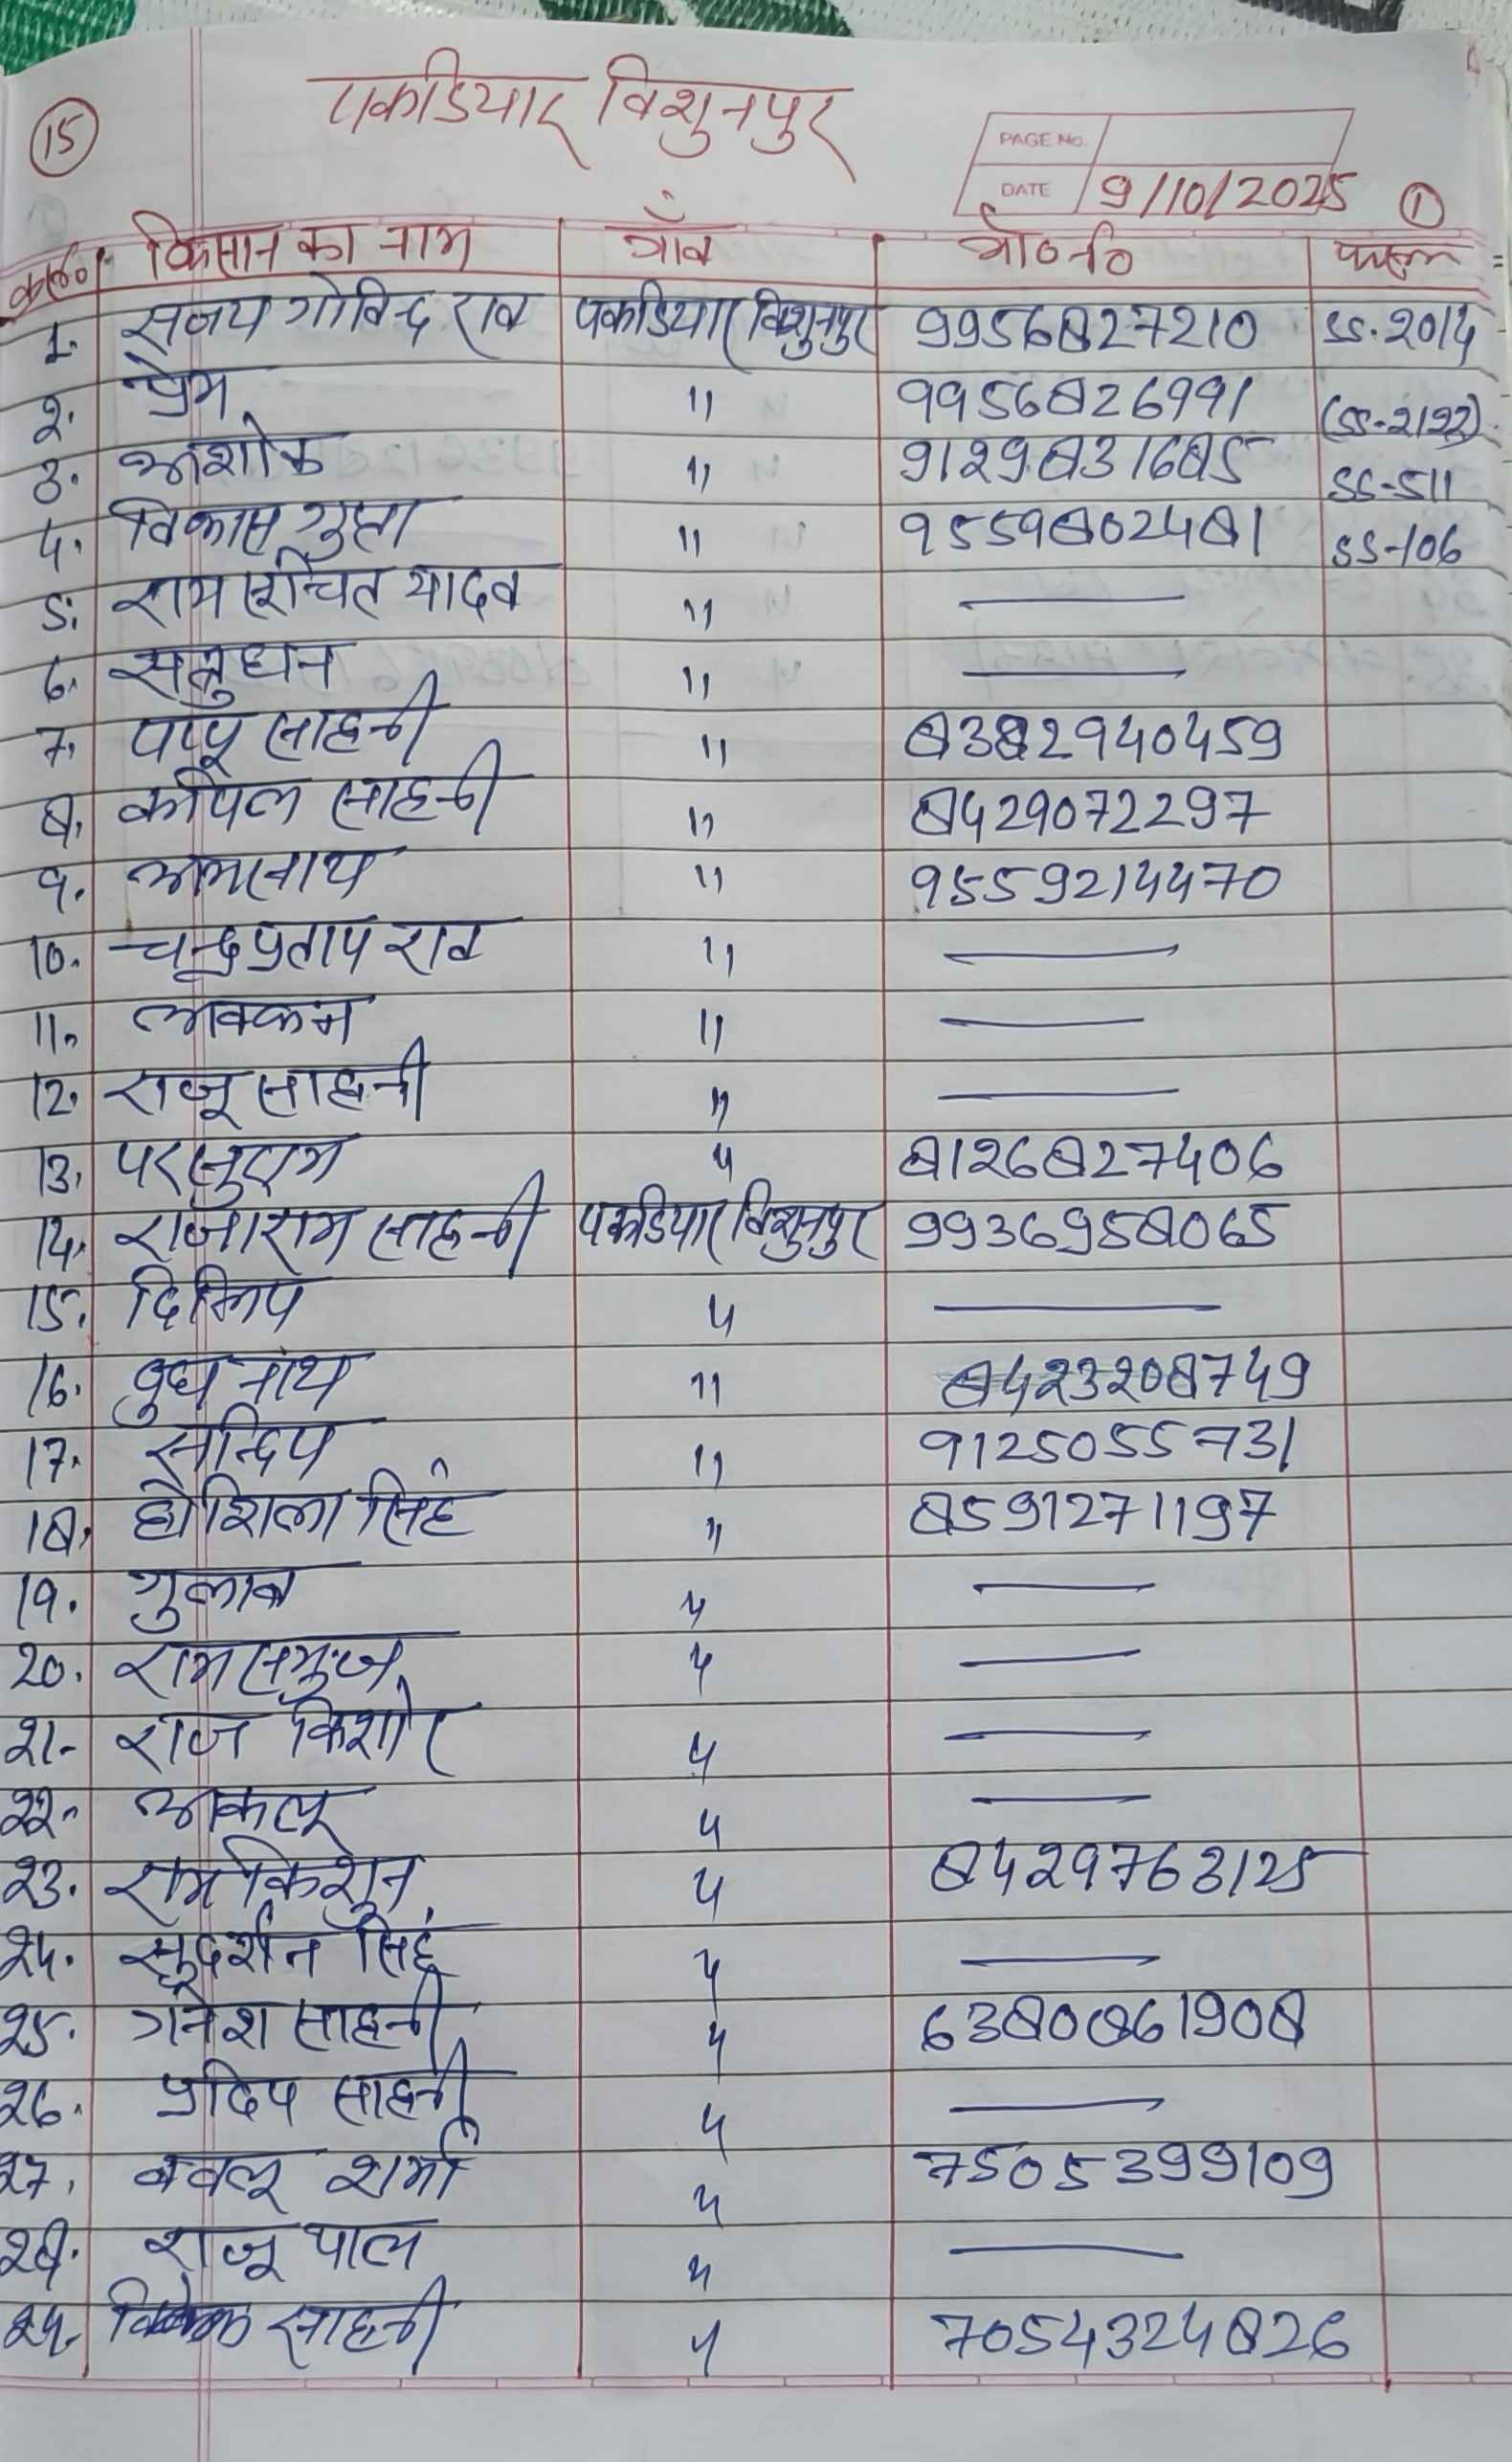 15 पकडियार विशुनपुर
PAGE No.
DATE 9/10/2025 1
क्र०सं० किसान का नाम गाँव मो०नं० फसल
1. संजय गोविन्द राव पकडियार विशुनपुर 9956827210 SS.2014
2. प्रेम 11 9956826991 (SS-2122)
3. अशोक 11 9129831685 SS-511
4. विकास गुप्ता 11 9559802481 SS-106
5. राम यादव 11 —
6. सत्रुधन 11 —
7. पप्पू साहनी 11 8382940459
8. कपिल साहनी 11 8429072297
9. अमरनाथ 11 9559214470
10. चन्द्र प्रताप राव 11 —
11. 11 —
12. राजू साहनी 11 —
13. परसुराम " 8126827406
14. राजाराम साहनी पकडियार विशुनपुर 9936958065
15. दिलिप " —
16. बुध नाथ 11 8423208749
17. सन्दिप 11 9125055731
18. हौशिला सिंह " 8591271197
19. गुलाब " —
20. राम समुज " —
21- राज किशोर " —
22. अकलू " —
23. राम किशुन " 8429763125
24. सुदर्शन सिंह " —
25. गनेश साहनी " 6380861908
26. प्रदिप साहनी " —
27. बबलू शर्मा " 7505399109
28. राजू पाल " —
29. साहनी " 7054324826